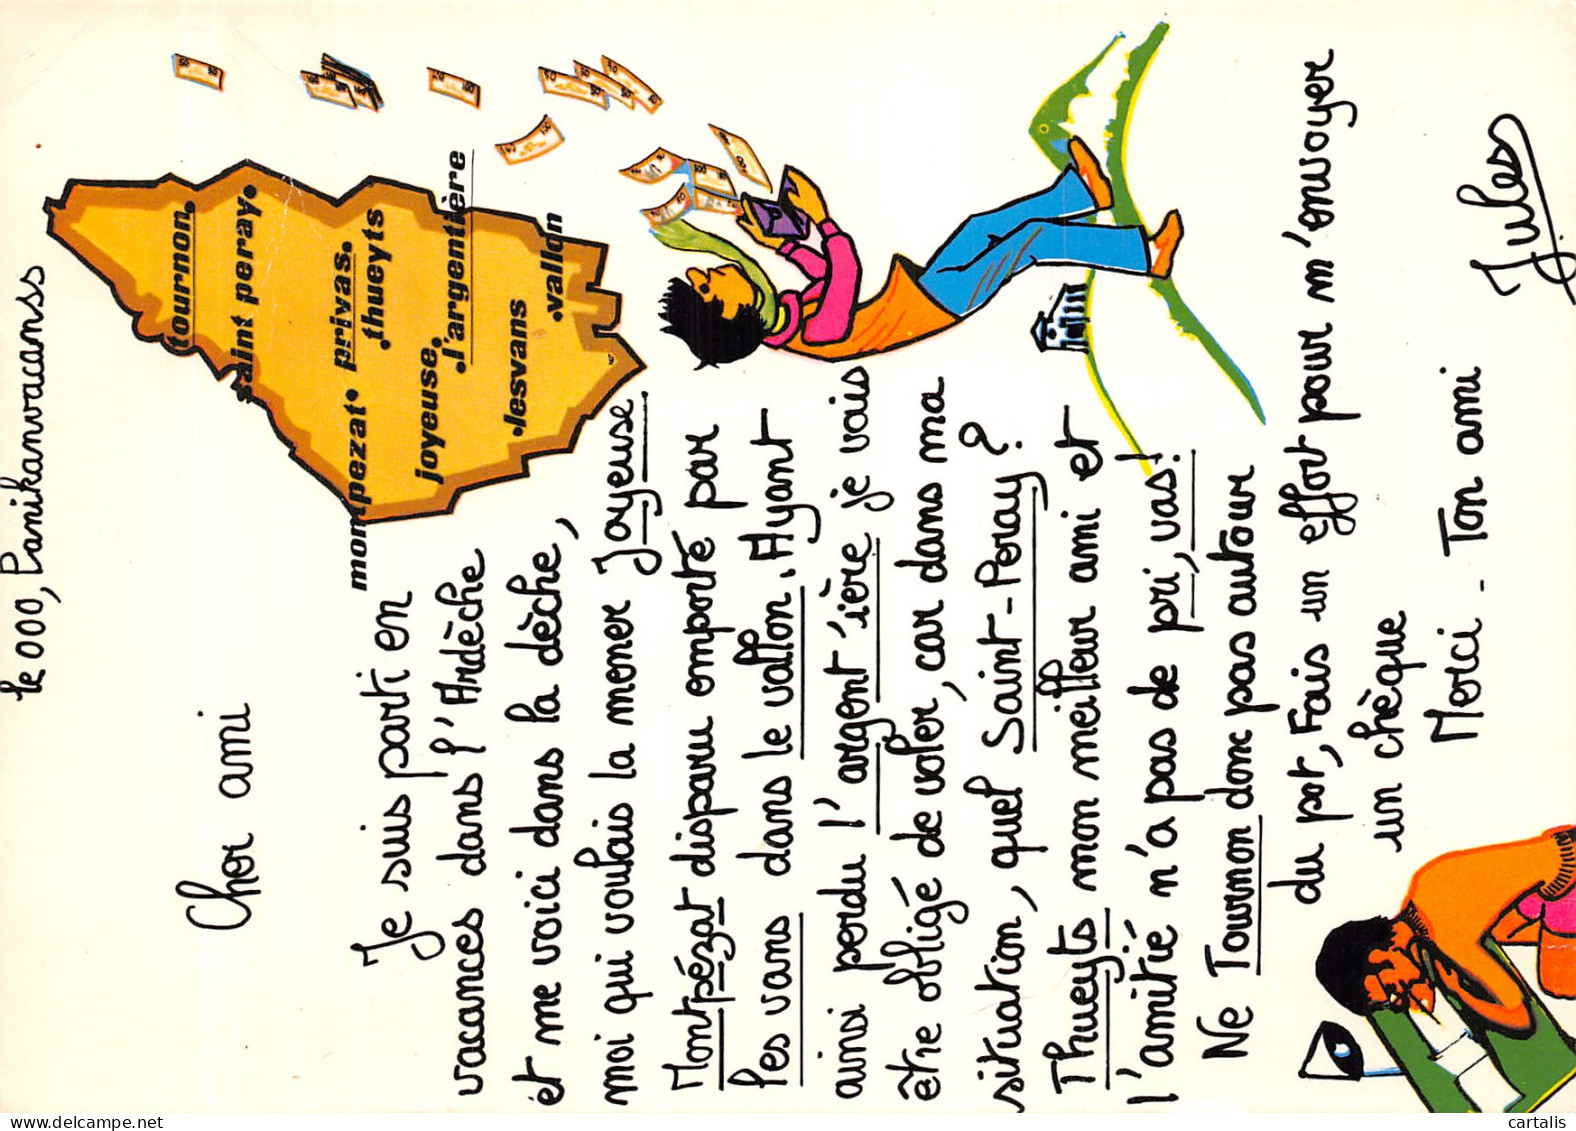 le 000, Panikanvacanss
Cher ami
Je suis parti en
vacances dans l'Ardèche
et me voici dans la dèche,
moi qui voulais la mener Joyeuse.
Montpézat disparu emporté par
les vans dans le vallon. Ayant
ainsi perdu l'argent'ière je vais
être obligé de voler, car dans ma
situation, quel Saint-Peray ?
Thueyts mon meilleur ami et
l'amitié n'a pas de pri, vas !
Ne Tournon donc pas autour
du pot, Fais un effort pour m'envoyer
un chèque
Merci - Ton ami
Jules
tournon.
saint peray.
montpezat. privas.
.thueyts
joyeuse.
.l'argentière
.lesvans
.vallon
cartalis.com